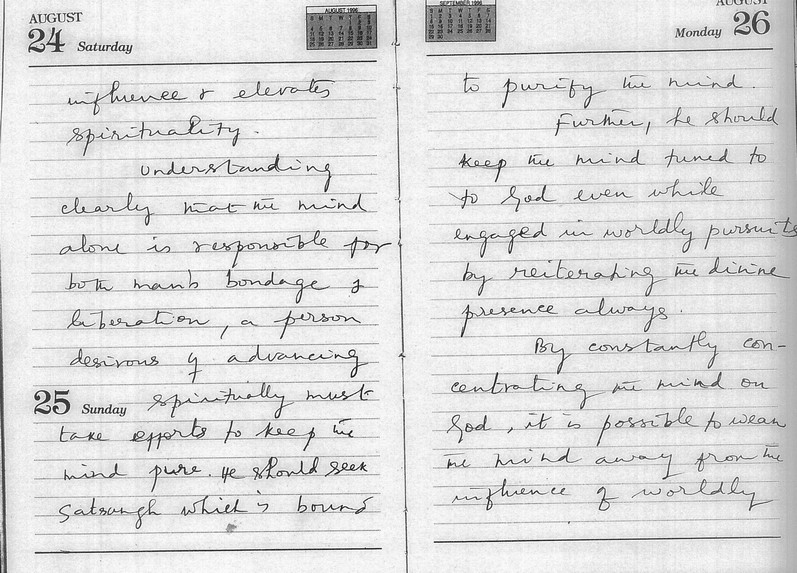 AUGUST
24 Saturday
AUGUST 1996
S M T W T F S
influence & elevates
spirituality.
Understanding
clearly that the mind
alone is responsible for
both man's bondage &
liberation, a person
desirous of advancing
25 Sunday spiritually must
take efforts to keep the
mind pure. He should seek
Satsangh which is bound
SEPTEMBER 1996
S M T W T F S
AUGUST
Monday 26
to purify the mind.
Further, he should
keep the mind tuned to
to God even while
engaged in worldly pursuits
by reiterating the divine
presence always.
By constantly con-
centrating the mind on
God, it is possible to wean
the mind away from the
influence of worldly